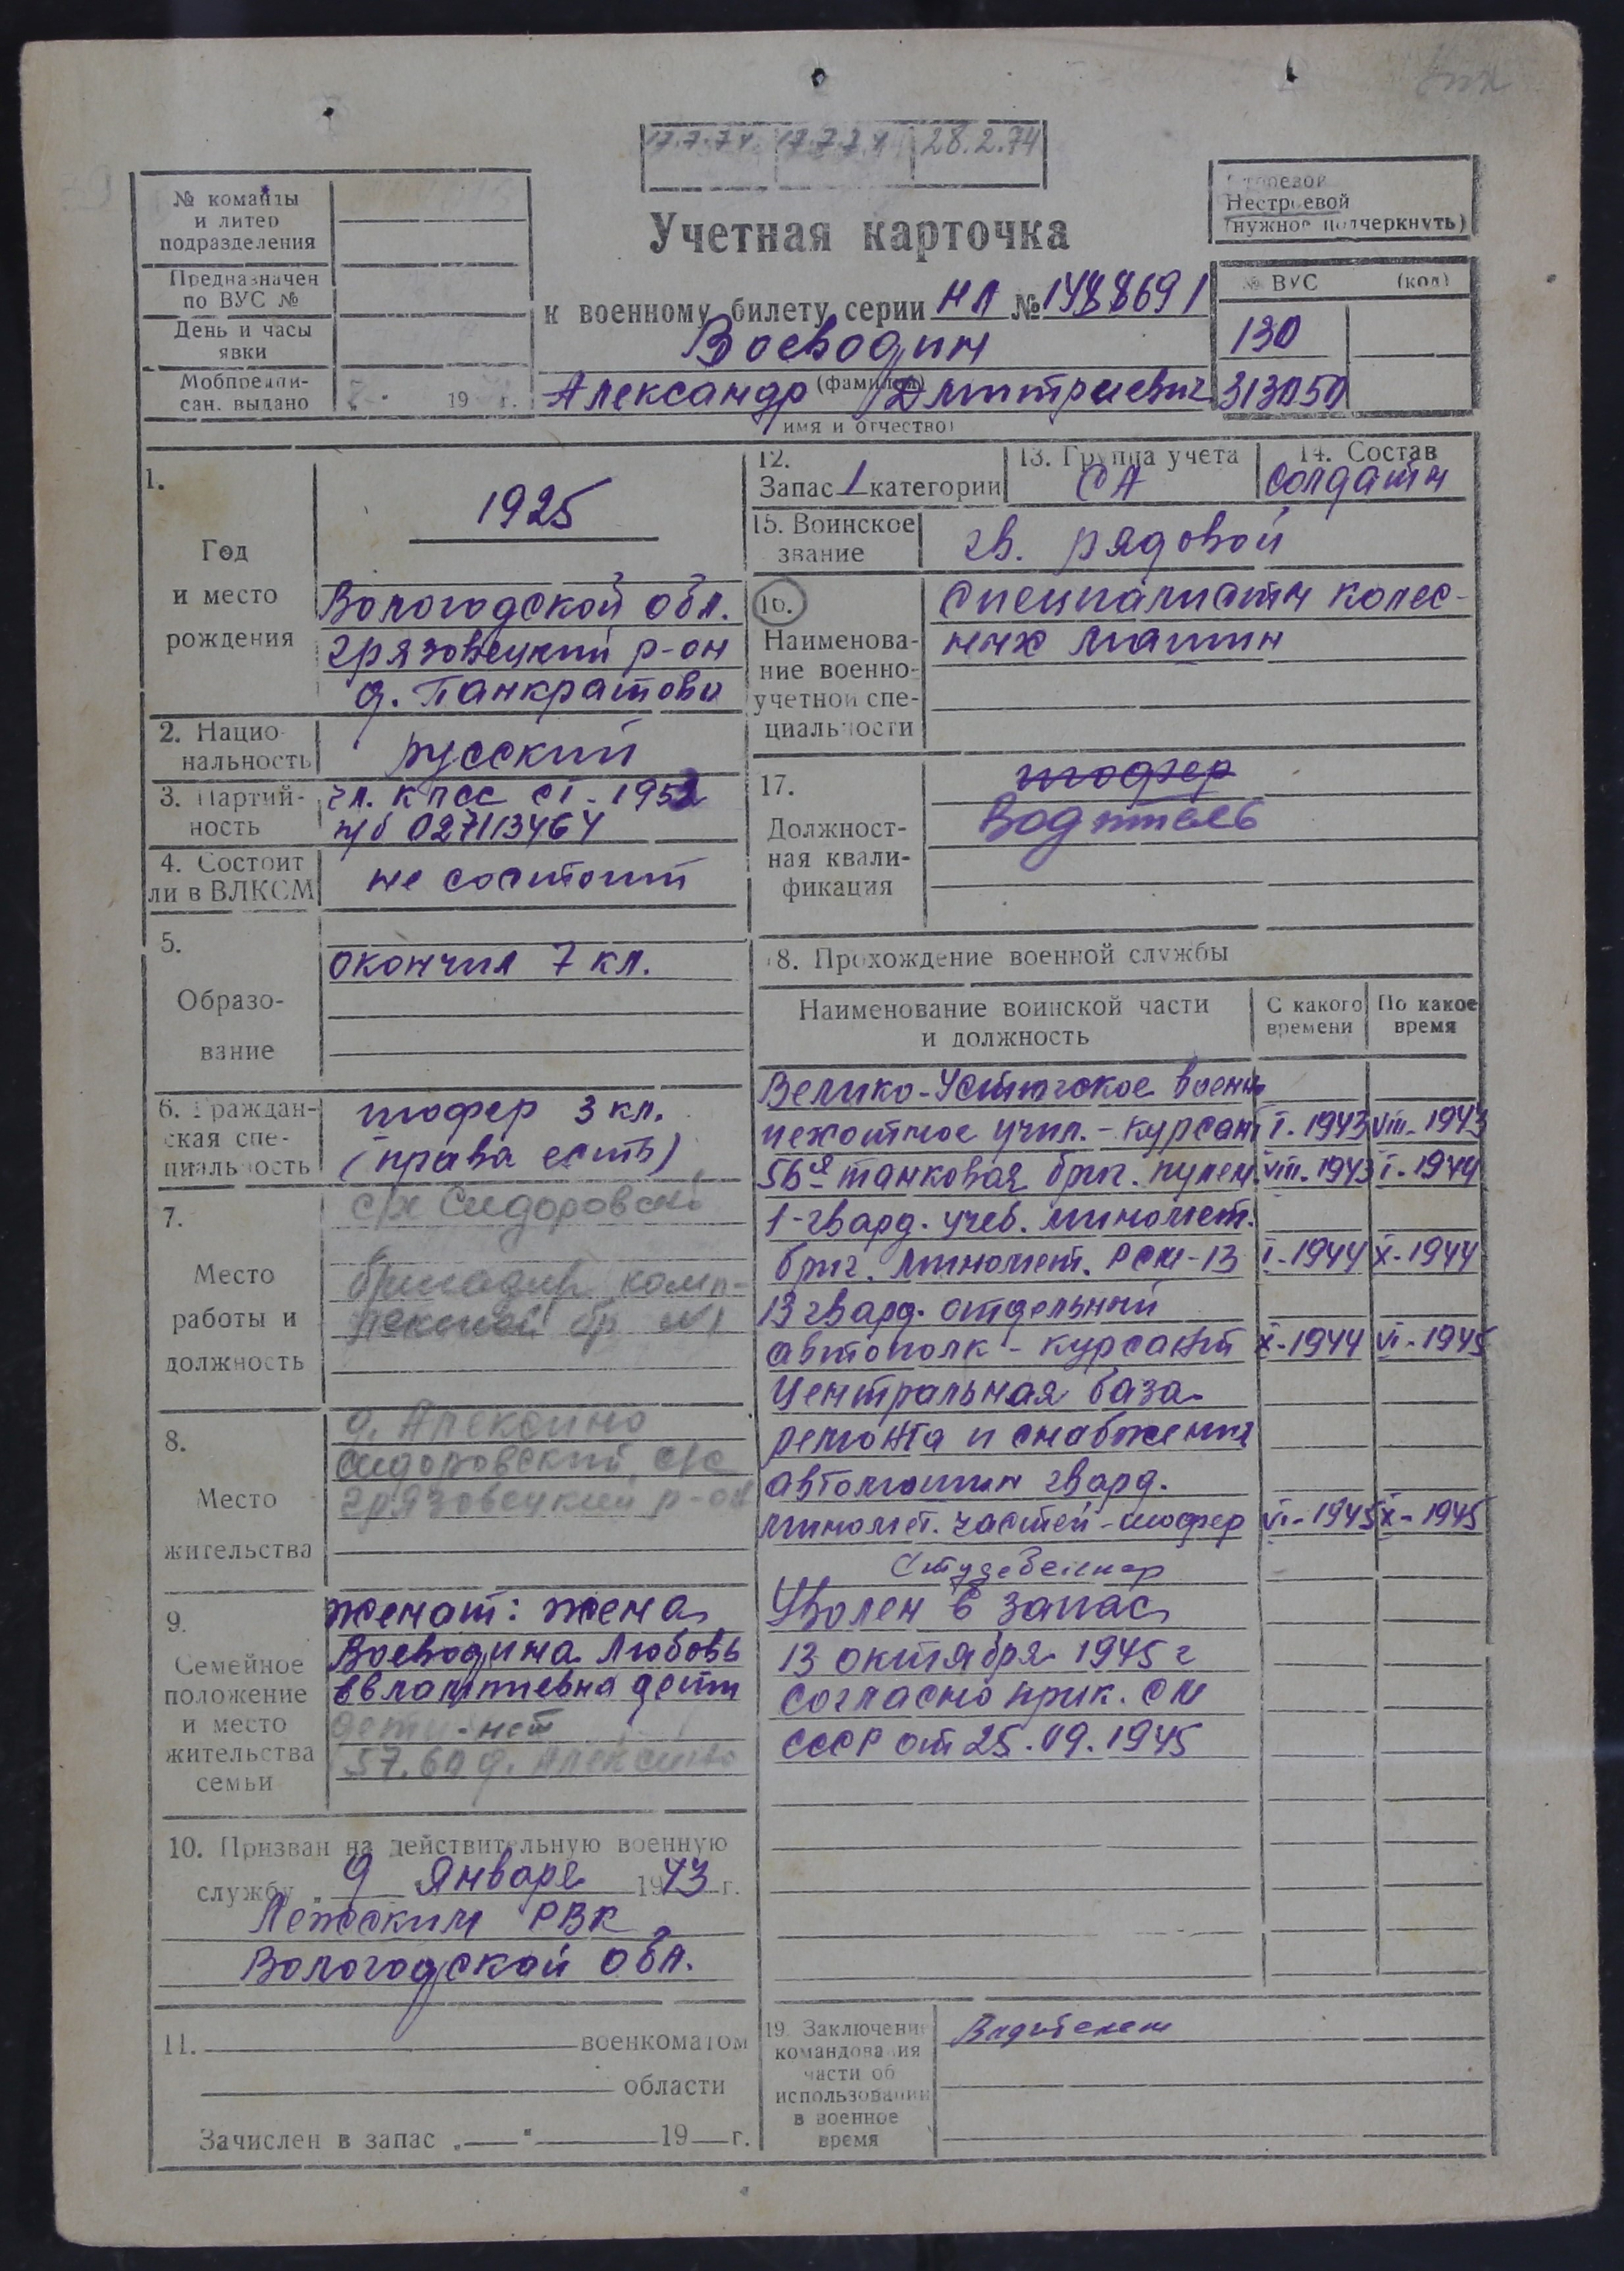 17.7.74 17.7.74 28.2.74
№ команды
и литер
подразделения
Предназначен
по ВУС №
День и часы
явки
Мобпредпи-
сан. выдано
19 г.
Учетная карточка
к военному билету серии НЛ № 1488691
Воеводин
(фамилия)
Александр Дмитриевич
имя и отчество)
Строевой
Нестроевой
(нужное подчеркнуть)
№ ВУС (код)
130
313050
1.
Год
и место
рождения
1925
Вологодской обл.
Грязовецкий р-он
д. Панкратово
2. Нацио-
нальность
русский
3. Партий-
ность
чл. КПСС с I - 1952
п/б 02713464
4. Состоит
ли в ВЛКСМ
не состоит
5.
Образо-
вание
окончил 7 кл.
6. Граждан-
ская спе-
циальность
шофер 3 кл.
(права есть)
7.
Место
работы и
должность
с/х Сидоровский
бригадир комп-
лексной бр №1
8.
Место
жительства
д. Алексино
Сидоровский с/с
Грязовецкий р-он
9.
Семейное
положение
и место
жительства
семьи
женат: жена
Воеводина Любовь
Евлампиевна дети
дети - нет
д. Алексино
10. Призван на действительную военную
службу „ 9 Января 1943 г.
Лежским РВК
Вологодской обл.
11. военкоматом
области
Зачислен в запас „ " 19 г.
12.
Запас 1 категории
13. Группа учета
СА
14. Состав
солдаты
15. Воинское
звание
гв. рядовой
16.
Наименова-
ние военно-
учетной спе-
циальности
Специалисты колес-
ных машин
17.
Должност-
ная квали-
фикация
шофер
Водитель
18. Прохождение военной службы
Наименование воинской части
и должность
С какого
времени
По какое
время
Велико-Устюгское военно
пехотное учил. - курсант I-1943 VIII-1943
56я танковая бриг. пулем. VIII-1943 I-1944
1-гвард. учеб. миномет.
бриг. миномет. РСМ-13 I-1944 X-1944
13 гвард. отдельный
автополк - курсант X-1944 VI-1945
Центральная база
ремонта и снабжения
автомашин гвард.
миномет. частей - шофер VI-1945 X-1945
Студебеккер
Уволен в запас
13 октября 1945 г
согласно прик. СМ
СССР от 25.09.1945
19. Заключение
командования
части об
использовании
в военное
время
Водителем